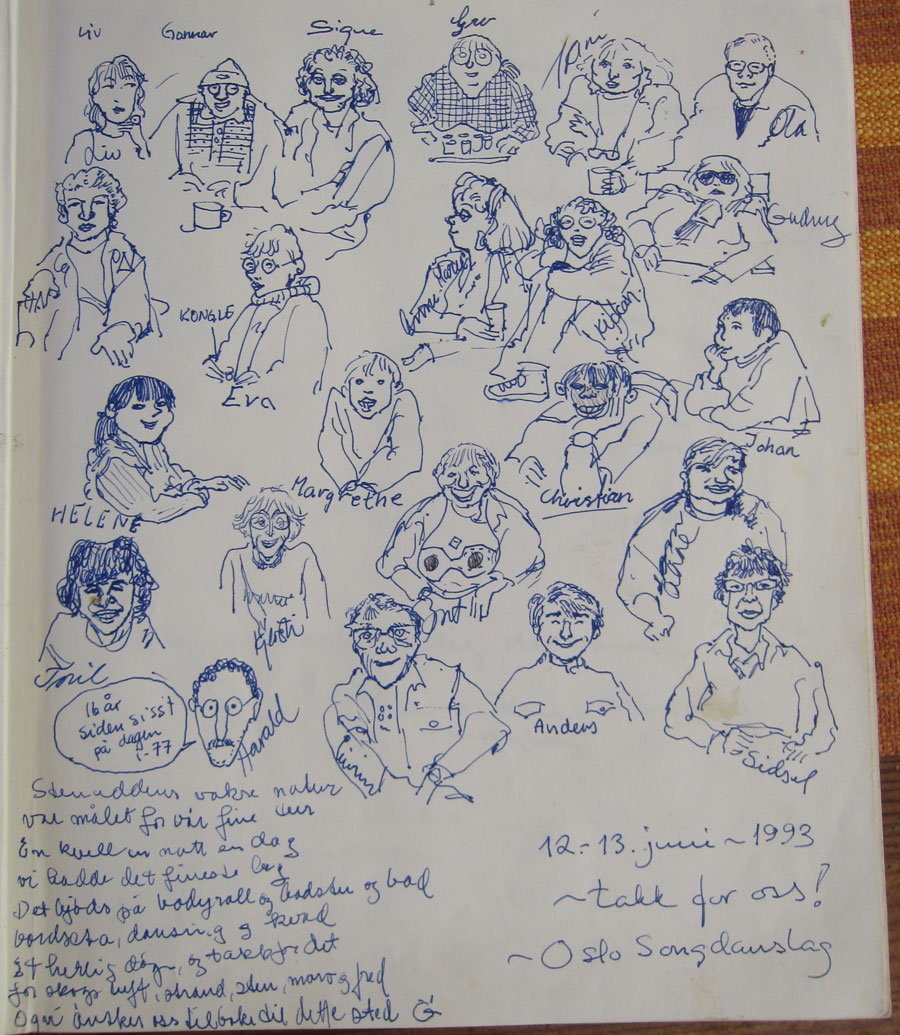 Liv
Gunnar
Signe
Gro
Liv
Ola
Gudrun
KONGLE
Eva
Kjetan
Johan
HELENE
Margrethe
Christian
Anne
Kjersti
Toril
16 år
siden sisst
på dagen
i -77
Harald
Anders
Sidsel
Stenuddens vakre natur
var målet for vår fine tur
En kvell en natt en dag
vi hadde det fineste lag
Det bjöds på og badstu og bad
bordseta, dansing og kvad
Et herlig døgn, og takk for det
for skogs luft, strand, sten, moro og fred
Og vi ønsker oss tilbake til dette sted
12.-13. juni ~ 1993
~ takk for oss!
~ Oslo Songdanslag